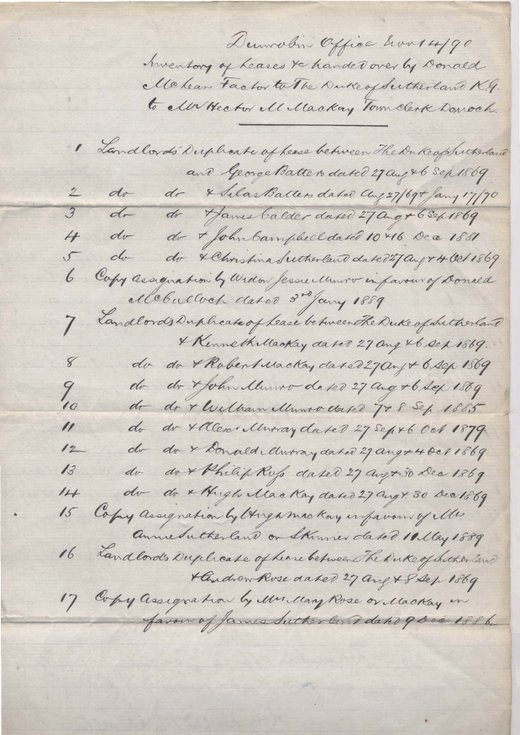 Dunrobin Office Novr 14/90
Inventory of leases &c handed over by Donald
McLean Factor to The Duke of Sutherland K.G.
to Mr Hector M Mackay Town Clerk Dornoch.
1 Landlords Duplicate of lease between The Duke of Sutherland
and George Batters dated 27 Aug & 6 Sep 1869
2 do do & Silas Batters dated Aug 27/69 & Jany 17/70
3 do do & James Calder dated 27 Aug & 6 Sep 1869
4 do do & John Campbell dated 10 & 16 Dec 1881
5 do do & Christina Sutherland dated 27 Aug & 4 Oct 1869
6 Copy Assignation by Widow Jessie Munro in favour of Donald
McCulloch dated 3rd Jany 1889
7 Landlords Duplicate of lease between The Duke of Sutherland
& Kenneth MacKay dated 27 Aug & 6 Sep 1869.
8 do do & Robert Mackay dated 27 Aug & 6 Sep 1869
9 do do & John Munro dated 27 Aug & 6 Sep 1869
10 do do & William Munro dated 7 & 8 Sep 1885
11 do do & Alexr Murray dated 27 Sep & 6 Oct 1879
12 do do & Donald Murray dated 27 Aug & 4 Oct 1869
13 do do & Philip Ross dated 27 Aug & 30 Dec 1869
14 do do & Hugh MacKay dated 27 Aug & 30 Dec 1869
15 Copy Assignation by Hugh MacKay in favour of Mrs
Annie Sutherland or Skinner dated 10 May 1889
16 Landlords Duplicate of lease between The Duke of Sutherland
& Andrew Rose dated 27 Aug & 8 Sep 1869
17 Copy Assignation by Mrs Mary Rose or MacKay in
favour of James Sutherland dated 9 Dec 1886.